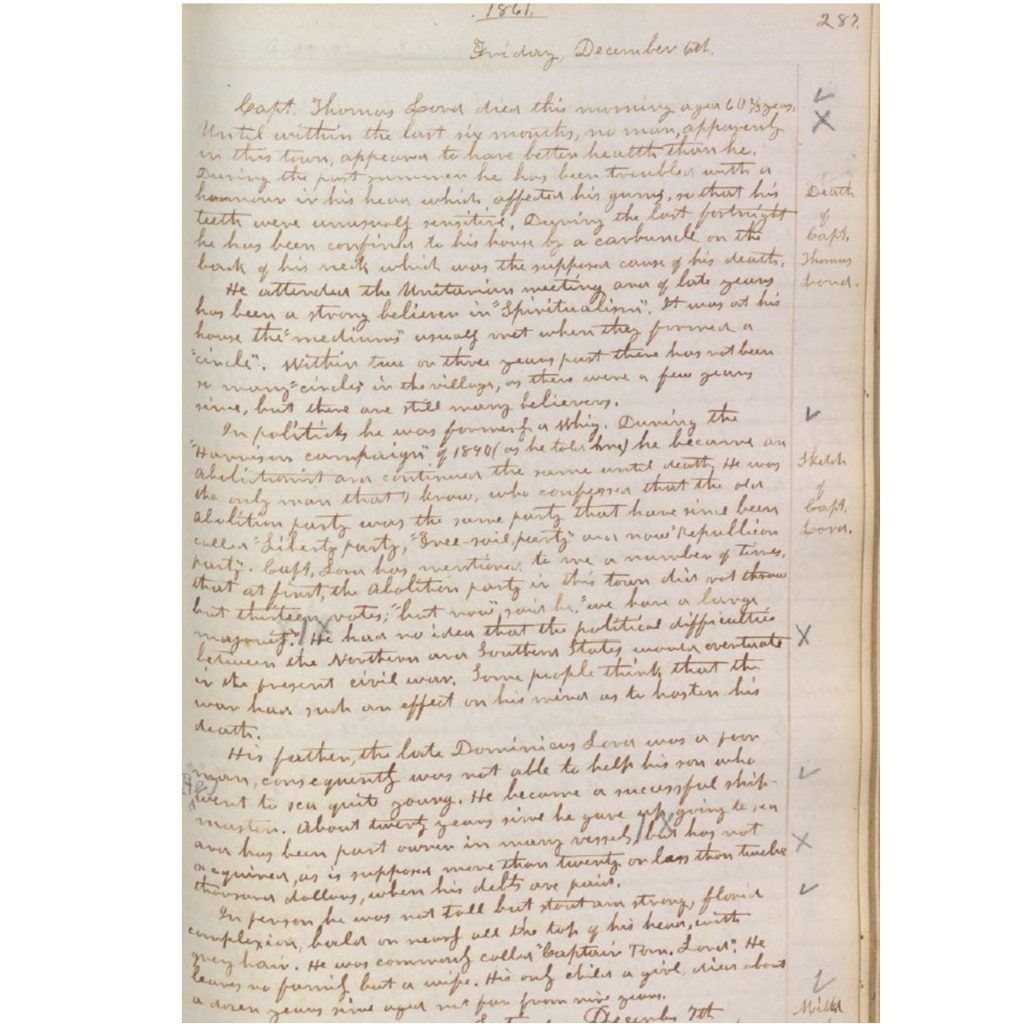 1861.
287.
Friday, December 6th.
Capt. Thomas Lord died this morning aged 60 2/3 years.
Until within the last six months, no man, apparently
in this town, appeared to have better health than he.
During the past summer he has been troubled with a
humour in his head which affected his gums, so that his
teeth were unusually sensitive. During the last fortnight
he has been confined to his house by a carbuncle on the
back of his neck which was the supposed cause of his death.
Death
of
Capt.
Thomas
Lord.
He attended the Unitarian meeting and of late years
has been a strong believer in "Spiritualism". It was at his
house the "mediums" usually met when they formed a
"circle". Within two or three years past there has not been
so many "circles" in the village, as there were a few years
since, but there are still many believers.
In politicks he was formerly a Whig. During the
"Harrison campaign" of 1840 (as he told me) he became an
Abolitionist and continued the same until death. He was
the only man that I know, who confessed that the old
Abolition party was the same party that have since been
called "Liberty party," "Free-soil party" and now "Republican
party". Capt. Lord has mentioned to me a number of times,
that at first, the Abolition party in this town did not throw
but thirteen votes; "but now", said he, "we have a large
majority." He had no idea that the political difficulties
between the Northern and Southern States would eventuate
in the present civil war. Some people think that the
war had such an effect on his mind as to hasten his
death.
Sketch
of
Capt.
Lord.
His father, the late Dominicus Lord was a poor
man, consequently was not able to help his son who
went to sea quite young. He became a successful ship-
master. About twenty years since he gave up going to sea
and has been part owner in many vessels, but has not
acquired, as is supposed more than twenty or less than twelve
thousand dollars, when his debts are paid.
In person, he was not tall but stout and strong, florid
complexion, bald on nearly all the top of his head, with
grey hair. He was commonly called "Captain Tom. Lord". He
leaves no family but a wife. His only child a girl, died about
a dozen years since aged not far from nine years.
December 7th
Mild